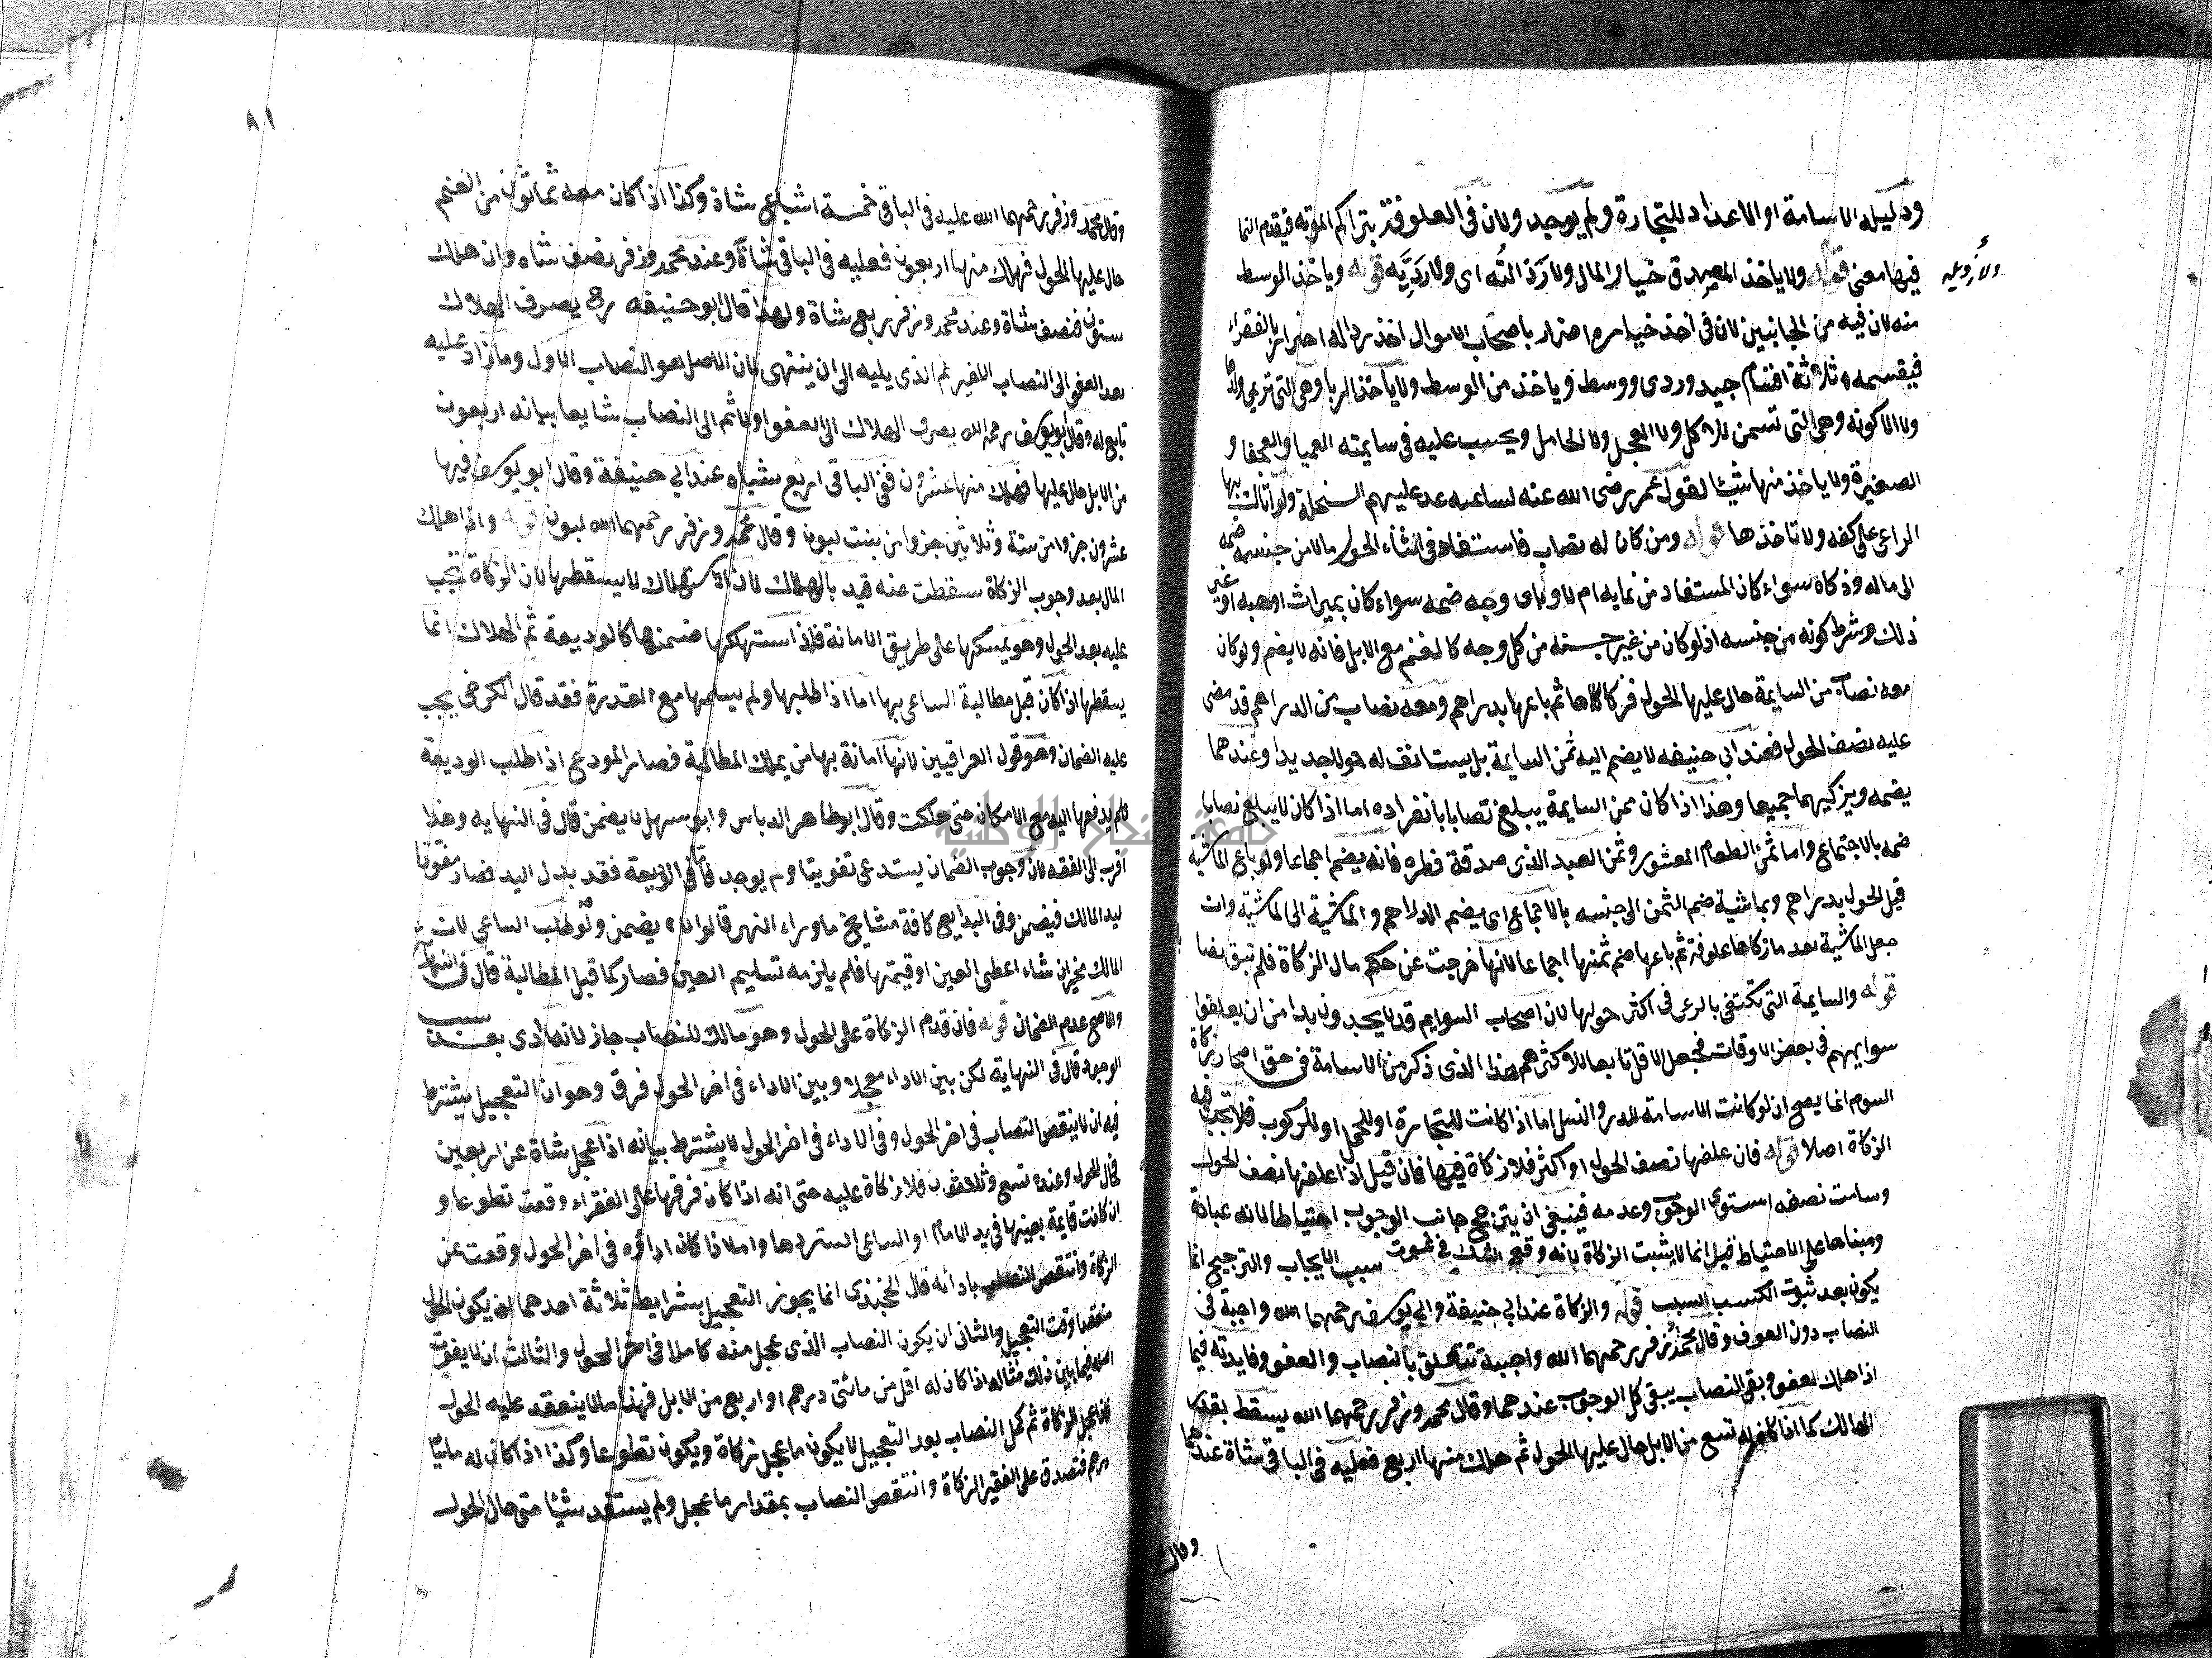 ودليله الاسامة او الاعداد للتجارة ولم يوجد ولان في العلوفة تتراكم المؤنه فيقدم النما
فيها معنى قوله ولا ياخذ المصدق خيار المال ولا رذالته اي ولا رديه قوله وياخذ الوسط
منه لان فيه من الجانبين لان في اخذ خياره اضرار باصحاب الاموال اخذ رذاله اضرار بالفقراء
فيقسمه ثلاثة اقسام جيد وردى ووسط وياخذ من الوسط ولا ياخذ الربا وهي التي تربي ولدها
ولا الاكولة وهي التي تسمن للاكل ولا الفحل ولا الحامل ويحسب عليه في سايمته العميا والعجفا و
الصغيرة ولا ياخذ منها شيئا لقول عمر رضى الله عنه لساعيه عد عليهم السخلة ولو اتاك بها
الراعي على كفه ولا تاخذها قوله ومن كان له نصاب فاستفاد في اثناء الحول مالا من جنسه ضمه
الى ماله وزكاه سواء كان المستفاد من نمايه ام لا وباى وجه ضمه سواء كان بميراث او هبه او غير
ذلك وشرط كونه من جنسه اذ لو كان من غير جنسه من كل وجه كالغنم مع الابل فانه لا يضم ولو كان
معه نصاب من السايمة حال عليها الحول فزكاها ثم باعها بدراهم ومعه نصاب من الدراهم قد مضى
عليه نصف الحول فعند ابي حنيفه لا يضم اليه ثمن السايمة بل يستانف له حولا جديدا وعندهما
يضمه ويزكيهما جميعا وهذا اذا كان ثمن السايمة يبلغ نصابا بانفراده اما اذا كان لا يبلغ نصابا
ضمه بالاجتماع واما ثمن الطعام المعشور وثمن العبد الذى صدقة فطره فانه يضم اجماعا ولو باع الماشية
قبل الحول بدراهم وبماشية ضم الثمن الى جنسه بالاجماع اى يضم الدراهم والماشية الى الماشية وان
جعل الماشية بعد ما زكاها علوفة ثم باعها ضم ثمنها اجماعا لانها خرجت عن حكم مال الزكاة فلم تبق نصابا
قوله والسايمة التي تكتفي بالرعي في اكثر حولها لان اصحاب السوايم قد لا يجدون بدا من ان يعلفوا
سوايمهم في بعض الاوقات فجعل الاقل تابعا للاكثر هذا الذى ذكر من الاسامة في حق ايجاب زكاة
السوم انما يصح ان لو كانت الاسامة للدر والنسل اما اذا كانت للتجارة او للحمل او للركوب فلا تجب فيه
الزكاة اصلا قوله فان علفها نصف الحول او اكثر فلا زكاة فيها فان قيل اذا علفها نصف الحول
وسامت نصفه استوى الوجوب وعدمه فينبغي ان يترجح جانب الوجوب احتياطا لانه عبادة
ومبناها على الاحتياط قيل انما لا يثبت الزكاة لانه وقع الشك في ثبوت سبب الايجاب والترجيح انما
يكون بعد ثبوت السبب قوله والزكاة عند ابي حنيفة وابي يوسف رحمهما الله واجبة في
النصاب دون العفو وقال محمد وزفر رحمهما الله واجبة تتعلق بالنصاب والعفو وفايدته فيما
اذا هلك العفو وبقي النصاب يبقى كل الوجوب عندهما وقال محمد وزفر رحمهما الله يسقط بقدر
الهالك كما اذا كان له تسع من الابل حال عليها الحول ثم هلك منها اربع فعليه في الباقي شاة عندهما
وقال
٨١
وقال محمد وزفر رحمهما الله عليه في الباقي خمسة اتساع شاة وكذا اذا كان معه ثمانون من الغنم
حال عليها الحول فهلك منها اربعون فعليه في الباقي شاة وعند محمد وزفر نصف شاه وان هلك
ستون فنصف شاة وعند محمد وزفر ربع شاة ولهذا قال ابو حنيفه رح يصرف الهلاك
بعد العفو الى النصاب الاخير ثم الذى يليه الى ان ينتهى لان الاصل هو النصاب الاول وما زاد عليه
تابع له وقال ابو يوسف رحمه الله يصرف الهلاك الى العفو اولا ثم الى النصاب شايعا بيانه اربعون
من الابل حال عليها فهلك منها عشرون ففي الباقي اربع شياه عند ابي حنيفة وقال ابو يوسف فيها
عشرون جزوا من ستة وثلاثين جزوا من بنت لبون وقال محمد وزفر رحمهما الله لبون قوله واذا هلك
المال بعد وجوب الزكاة سقطت عنه قيد بالهلاك لان الاستهلاك لا يسقطها لان الزكاة تجب
عليه بعد الحول وهو يمسكها على طريق الامانة فاذا استهلكها ضمنها كالوديعة ثم الهلاك انما
يسقطها اذا كان قبل مطالبة الساعي بها اما اذا طلبها ولم يسلمها مع القدرة فقد قال الكرخي يجب
عليه الضمان وهو قول العراقيين لانها امانة بها من يملك المطالبة فصار المودع اذا طلب الوديعة
فلم يدفعها اليه مع الامكان حتى هلكت وقال ابو طاهر الدباس وابو سهل لا يضمن قال في النهايه وهذا
اقرب الى الفقه لان وجوب الضمان يستدعي تفويتا ولم يوجد في الوديعة فقد بدل اليد فصار مفوتا
ليد المالك فيضمن وفي البدايع كافة مشايخ ما وراء النهر قالوا لا يضمن ولو طلب الساعي لان
المالك مخير ان شاء اعطى العين او قيمتها فلم يلزمه تسليم العين فصار كما قبل المطالبة قال في النهاية
والاصح عدم الضمان قوله فان قدم الزكاة على الحول وهو مالك للنصاب جاز لانه ادى بعد سبب
الوجوب قال في النهايه لكن بين الاداء معجلا وبين الاداء في اخر الحول فرق وهو ان التعجيل يشترط
فيه ان لا ينتقص النصاب في اخر الحول وفي الاداء في اخر الحول لا يشترط بيانه اذا عجل شاة عن اربعين
فحال الحول وعنده تسع وثلاثون فلا زكاة عليه حتى انه اذا كان فرقها على الفقراء وقعت تطوعا و
ان كانت قايمة بعينها في يد الامام او الساعي استردها واما اذا كان اداؤه في اخر الحول وقعت عن
الزكاة وانتقص النصاب بادائه قال الخجندى انما يجوز التعجيل بشرايط ثلاثة احدهما ان يكون الحول
منعقدا وقت التعجيل والثاني ان يكون النصاب الذى عجل منه كاملا في اخر الحول والثالث ان لا يفوت
اصله فيما بين ذلك مثاله اذا كان له اقل من مائتى درهم او اربع من الابل فهذا مال لا ينعقد عليه الحول
فاذا عجل الزكاة ثم كمل النصاب بعد التعجيل لا يكون ما عجل زكاة ويكون تطوعا وكذا اذا كان له مايتا
درهم فتصدق على الفقير الزكاة وانتقص النصاب بمقدار ما عجل ولم يستفد شيئا حتى حال الحول
جامعة النجاح الوطنية